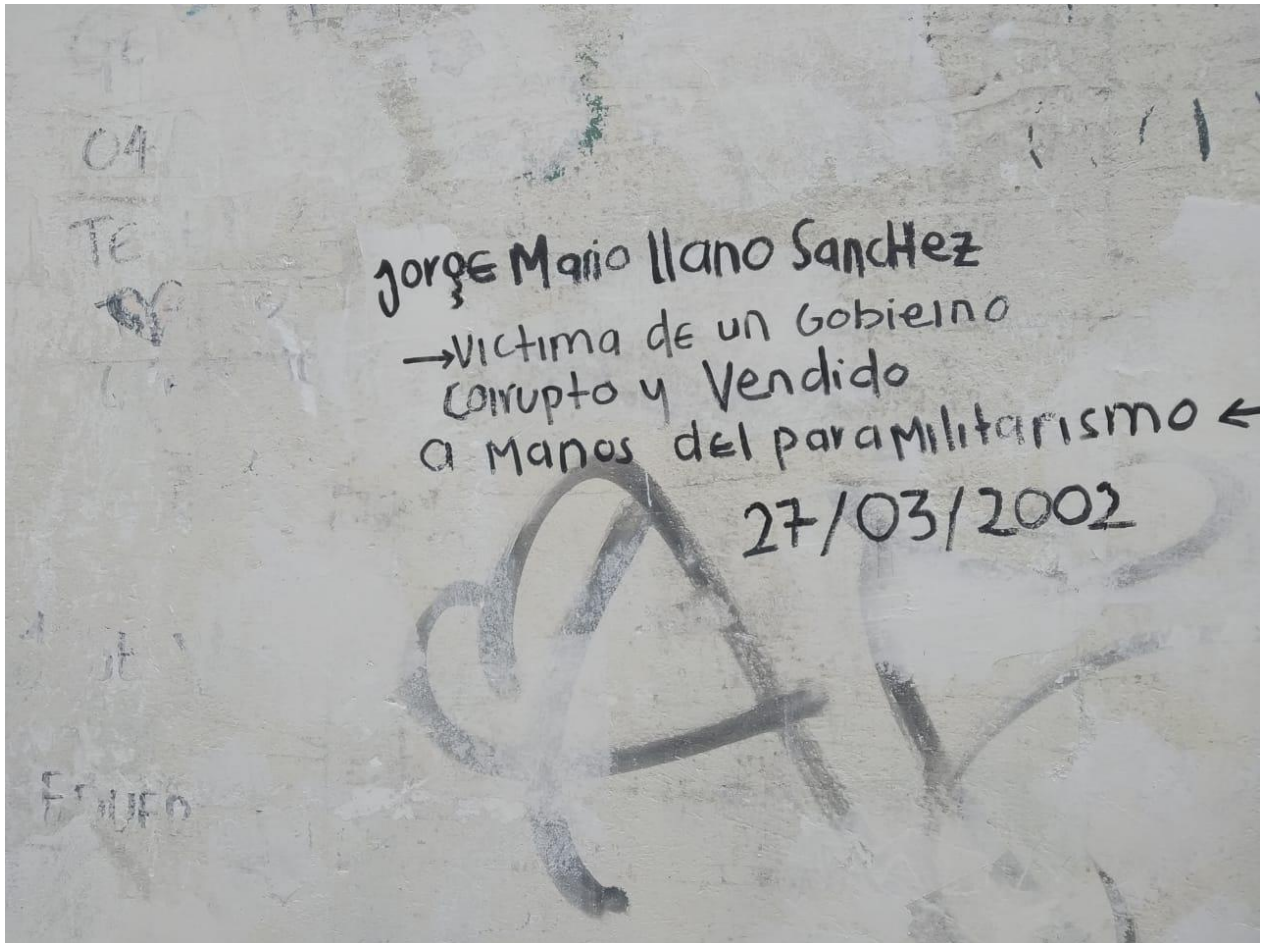 04
TE
jorgE Mario llano SancHez
→Victima dE un Gobierno
corrupto y Vendido
a Manos dEl paraMilitarismo ←
27/03/2002